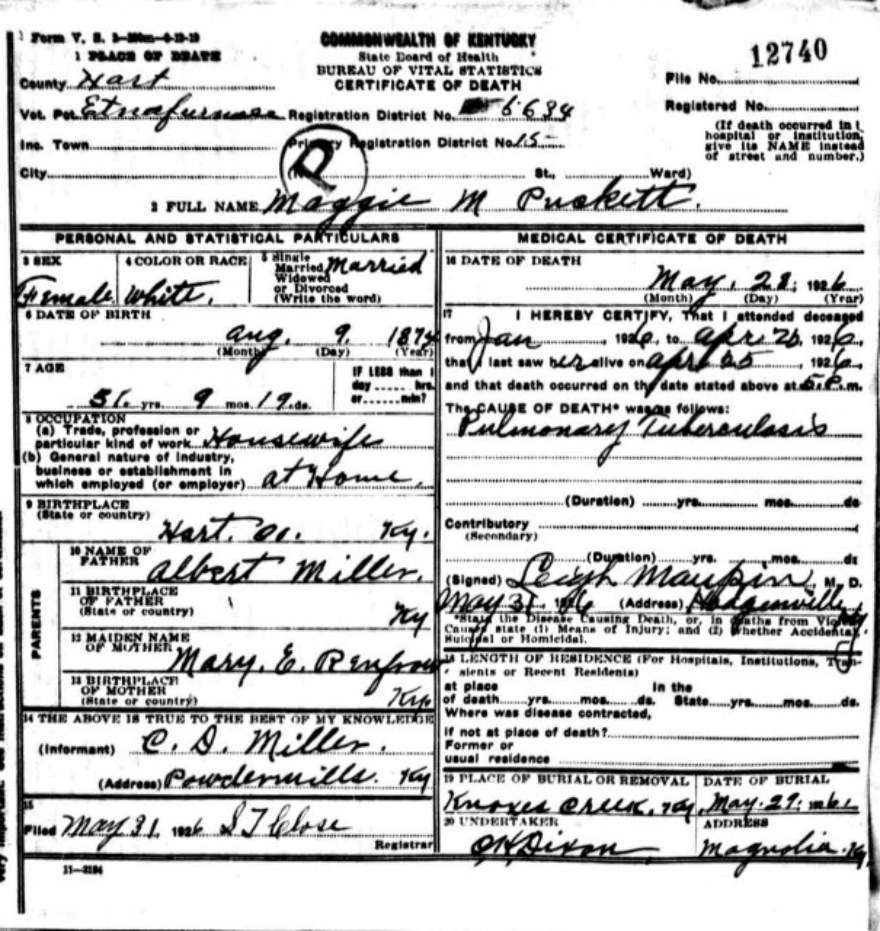 Form V. S. 1-350m-4-13-19
COMMONWEALTH OF KENTUCKY
State Board of Health
BUREAU OF VITAL STATISTICS
CERTIFICATE OF DEATH
12740
1 PLACE OF DEATH
County Hart
File No.
Vot. Pct. Etnafurnace Registration District No. 6634
Registered No.
(If death occurred in
hospital or institution,
give its NAME instead
of street and number.)
Inc. Town Primary Registration District No. 15
City (No. St., Ward)
P
2 FULL NAME Maggie M Puckett.
PERSONAL AND STATISTICAL PARTICULARS
3 SEX
Female
4 COLOR OR RACE
White.
5 Single
Married
Widowed
or Divorced
(Write the word)
Married
6 DATE OF BIRTH
Aug. 9. 1874
(Month) (Day) (Year)
7 AGE
51 yrs. 9 mos. 19 ds.
IF LESS than 1
day ...... hrs.
or ...... min?
8 OCCUPATION
(a) Trade, profession or
particular kind of work Housewife
(b) General nature of industry,
business or establishment in
which employed (or employer) at Home.
9 BIRTHPLACE
(State or country)
Hart. Co. Ky.
PARENTS
10 NAME OF
FATHER
Albert Miller.
11 BIRTHPLACE
OF FATHER
(State or country)
Ky
12 MAIDEN NAME
OF MOTHER
Mary. E. Renfrow
13 BIRTHPLACE
OF MOTHER
(State or country)
Ky
14 THE ABOVE IS TRUE TO THE BEST OF MY KNOWLEDGE
(Informant) C. D. Miller.
(Address) Powdermills. Ky
15
Filed May 31 1926 S T Close
Registrar
11-3184
MEDICAL CERTIFICATE OF DEATH
16 DATE OF DEATH
May. 28. 1926
(Month) (Day) (Year)
17 I HEREBY CERTIFY, That I attended deceased
from Jan , 1926, to Apr 25, 1926,
that I last saw her alive on Apr 25 , 1926,
and that death occurred on the date stated above at 5. P. m.
The CAUSE OF DEATH* was as follows:
Pulmonary Tuberculosis
(Duration) yrs. mos. ds
Contributory
(Secondary)
(Duration) yrs. mos. ds
(Signed) Leigh Maupin, M. D.
May 31, 1926 (Address) Hodgenville Ky
*State the Disease Causing Death, or, in deaths from Violent
Causes state (1) Means of Injury; and (2) Whether Accidental,
Suicidal or Homicidal.
18 LENGTH OF RESIDENCE (For Hospitals, Institutions, Transients or Recent Residents)
at place
of death yrs. mos. ds.
In the
State yrs. mos. ds.
Where was disease contracted,
if not at place of death?
Former or
usual residence
19 PLACE OF BURIAL OR REMOVAL
Knoxes Creek, Ky
DATE OF BURIAL
May. 29. 1926
20 UNDERTAKER
Dixon
ADDRESS
Magnolia. Ky.